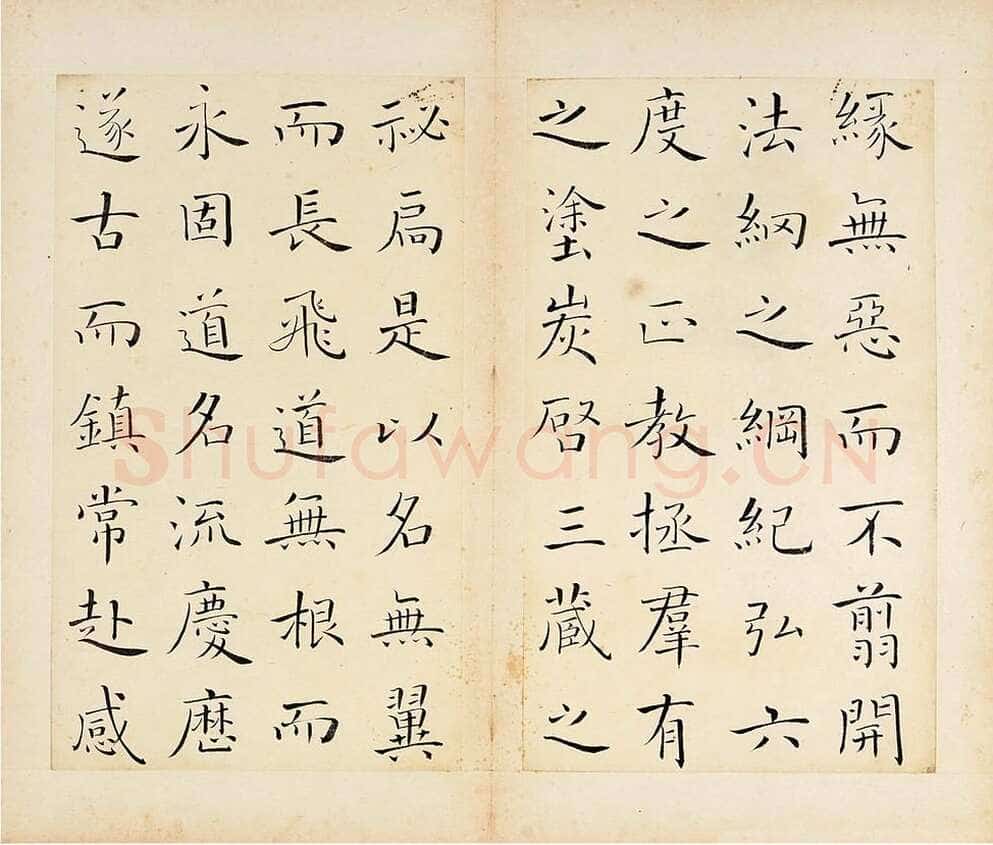 緣無惡而不翦開
法網之綱紀弘六
度之正教拯羣有
之塗炭啓三藏之
祕扃是以名無翼
而長飛道無根而
永固道名流慶歷
遂古而鎮常赴感
Shufawang.CN